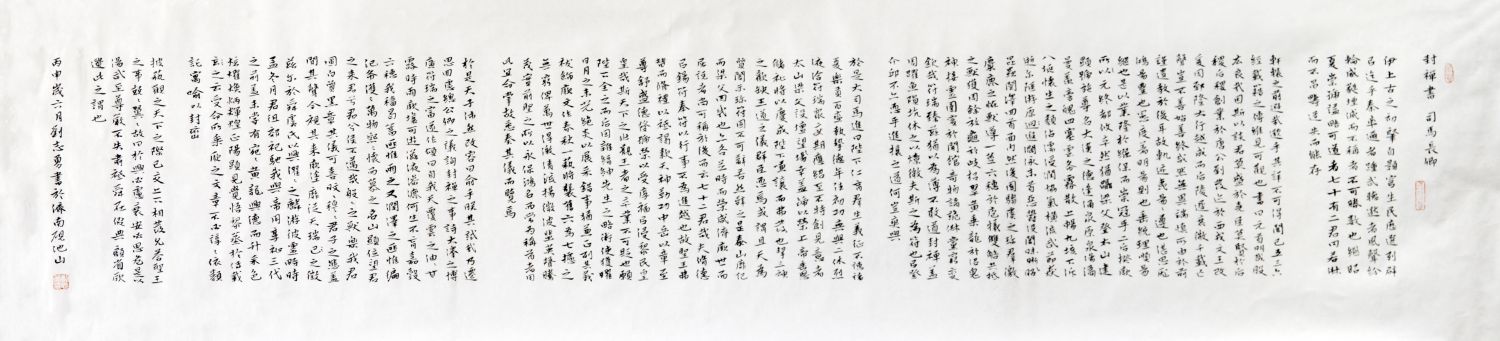 封禪書 司馬長卿
伊上古之初肇自顥穹生民歷選列辟
以迄乎秦率邇者踵武聽逖者風聲紛
綸威蕤堙滅而不稱者不可勝數也繼昭
夏崇號謚略可道者七十有二君罔若淑
而不昌疇逆失而能存
軒轅之前遐哉邈乎其詳不可得聞已五三六
經載籍之傳維見可觀也書曰元首明哉股
肱良哉因斯以談君莫盛於堯臣莫賢於后
稷后稷創業於唐公劉發跡於西戎文王改
制爰周郅隆大行越成而後陵遲衰微千載亡
聲豈不善始善終哉然無異端慎所由於前
謹遺教於後耳故軌跡夷易易遵也湛恩厖
鴻易豐也憲度著明易則也垂統理順易
繼也是以業隆於襁褓而崇冠乎二后揆厥
所以元終都攸卒然猶躡梁父登太山建
顯號施尊名大漢之德逢涌原泉沕潏
曼羨旁魄四塞雲布霧散上暢九垓下泝
八埏懷生之類沾濡浸潤協氣橫流武節猋
昆蟲闓澤回首面內然後囿騶虞之珍群徼
麋鹿之怪獸導一莖六穗於庖犧雙觡共抵
之獸獲周餘放龜於岐招翠黃乘龍於沼鬼
神接靈圉賓於閒館奇物譎詭俶儻窮變
欽哉符瑞臻茲猶以為薄不敢道封禪蓋
周躍魚隕杭休之以燎微夫斯之為符也以登
介丘不亦恧乎進攘之道何其爽與
於是大司馬進曰陛下仁育群生義征不憓諸
夏樂貢百蠻執贄德牟往初功無與二休烈
浹洽符瑞眾變期應紹至不特創見意者
太山梁父設壇場望幸
陛下謙讓而弗發也挈三神
之歡缺王道之儀群臣恧焉或謂且天為
質闇示珍符固不可辭若然辭之是泰山靡記
而梁父罔幾也亦各並時而榮咸濟厥世而
屈說者尚何稱於後而云七十二君哉夫修德
以錫符奉符以行事不為進越也故聖王弗
替而修禮以祗謁款天神勒功中岳以章至
尊舒盛德發號榮以受厚福以浸黎民皇
皇哉斯天下之壯觀王者之卒業不可貶也願
陛下全之而后因雜縉紳先生之略術使獲曜
日月之末光絕炎以展采錯事猶兼正列其義
祓飾厥文作春秋一藝將襲舊六為七攄之
無窮俾萬世得激清流揚微波蜚英聲騰
茂實前聖之所以永保鴻名而常為稱首者用
此宜命掌故悉奏其儀而覽焉
於是天子沛然改容曰俞乎朕其試哉乃遷
思回慮總公卿之議詢封禪之事詩大澤之博
廣符瑞之富遂作頌曰自我天覆雲之油油甘
露時雨厥壤可游滋液滲漉何生不育嘉穀
六穗我穡曷蓄匪惟雨之又潤澤之匪惟偏
之來君乎君乎侯不邁哉般般之獸樂我君
囿白質黑章其儀可喜旼旼穆穆君子之態蓋
聞其聲今視其來厥塗靡從天瑞之徵
茲爾於舜虞氏以興濯濯之麟游彼靈畤
孟冬十月君徂郊祀馳我君輿帝用享祉三代
之前蓋未嘗有宛宛黃龍興德而升采色
炫耀煥炳輝煌正陽顯見覺悟黎烝於傳載
之云受命所乘厥之有章不必諄諄依類
託寓喻以封巒
披藝觀之天人之際已交上下相發允答聖王
湯武至尊嚴不失肅祗舜在假典顧省厥
遺此之謂也
丙申歲六月劉志勇書於濟南硯池山